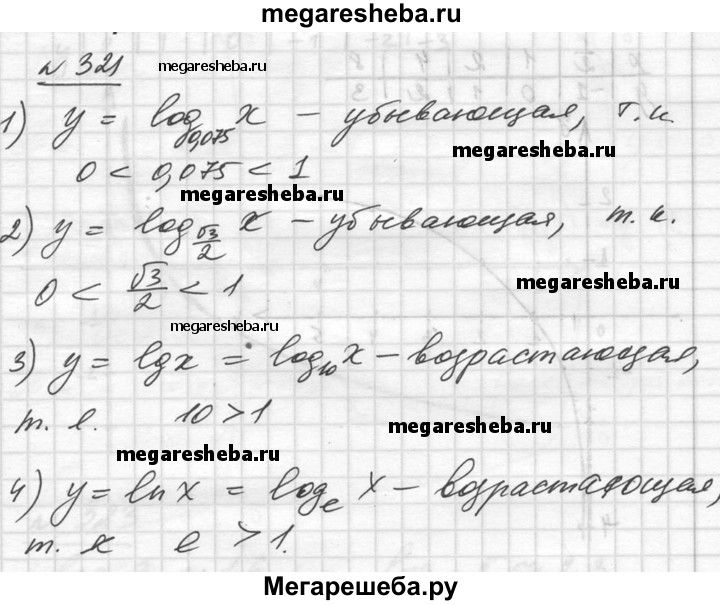 megaresheba.ru
N 321
megaresheba.ru
1) y = log₀,₀₇₅ x – убывающая, т.к.
megaresheba.ru
0 < 0,075 < 1
megaresheba.ru
2) y = log_(√3/2) x – убывающая, т. к.
0 < √3/2 < 1
megaresheba.ru
megaresheba.ru
3) y = lgx = log₁₀ x – возрастающая,
т. е. 10 > 1
megaresheba.ru
megaresheba.ru
4) y = ln x = logₑ x – возрастающая,
т. к e > 1.
megaresheba.ru
Мегарешеба.ру